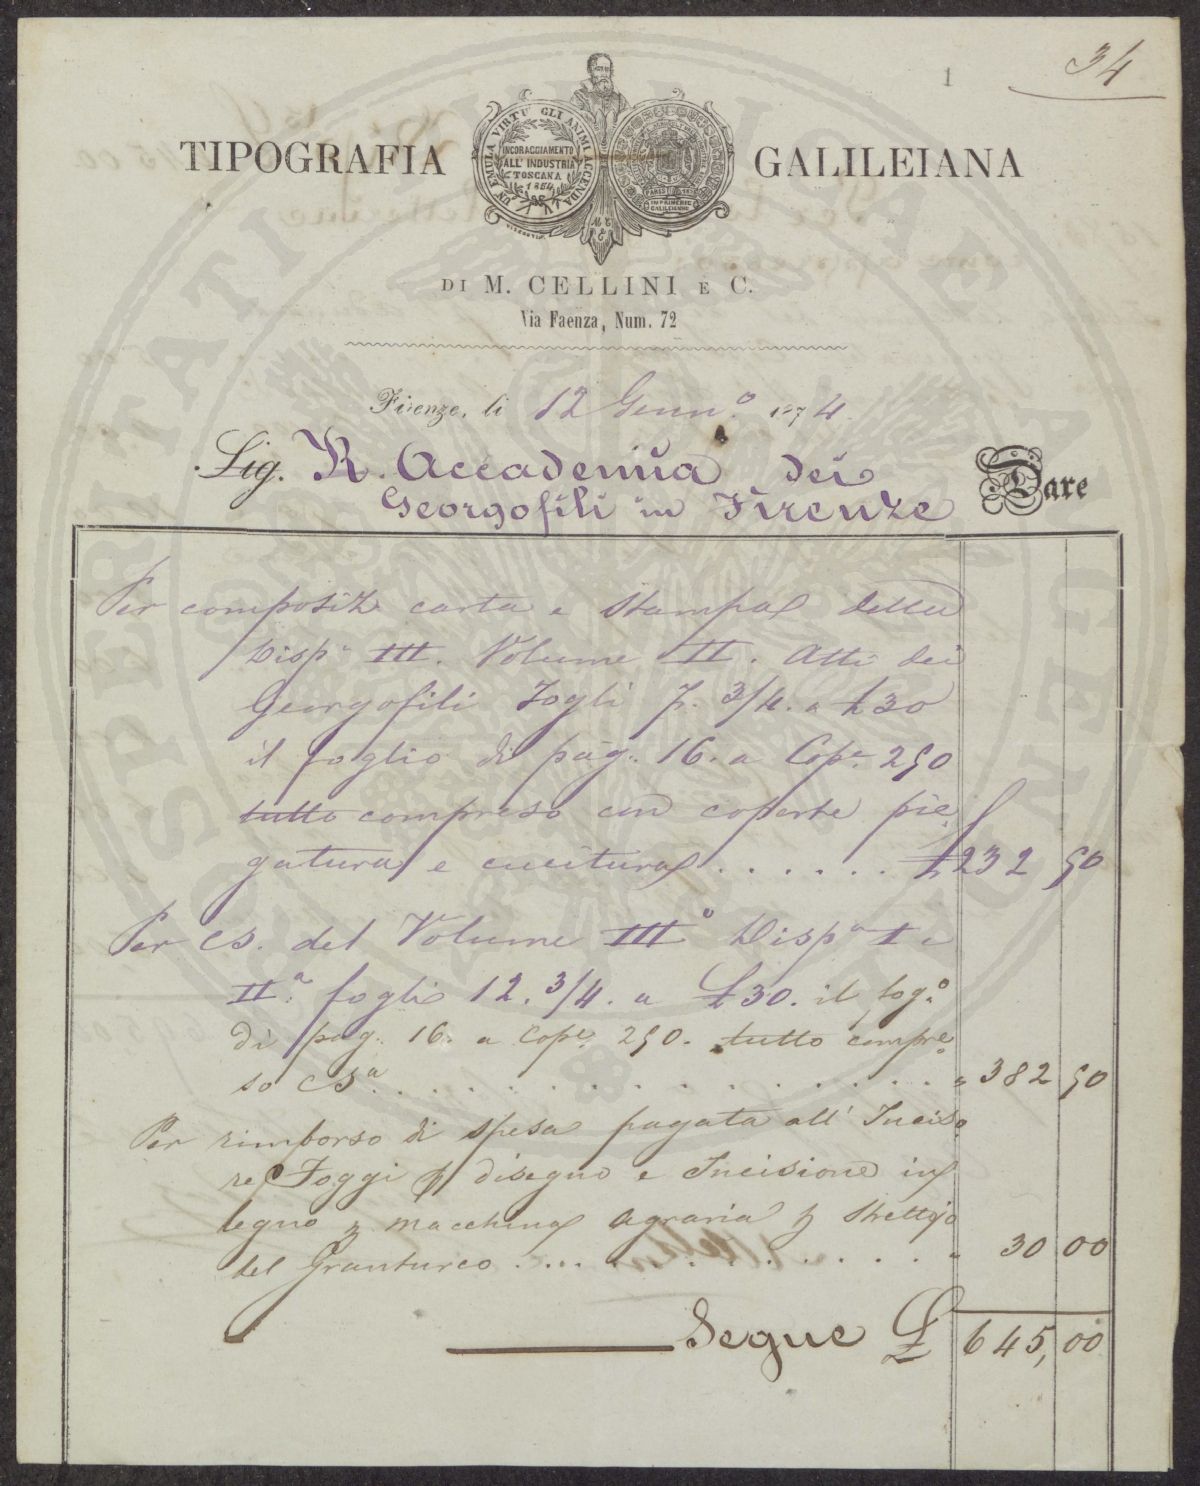 34
1
TIPOGRAFIA GALILEIANA
UN EMULA VIRTÙ GLI ANIMI ACCENDA
INCORAGGIAMENTO
ALL' INDUSTRIA
TOSCANA
1854
IMPRIMERIE
GALILEIENNE
M C
DI M. CELLINI E C.
Via Faenza, Num. 72
Firenze, li 12 Genn.º 1874.
Sig. R. Accademia dei Dare
Georgofili in Firenze
Per composiz. carta e stampa della
Disp.ª III. Volume II. Atti dei
Georgofili Fogli 7. 3/4. a £30
il foglio di pag. 16. a Cop.e 250
tutto compreso con coperte pie
gatura e cucitura . . . . . . £ 232 50
Per cs. del Volume IIIº Disp.ª I e
II.ª fogli 12. 3/4. a £30. il fog.º
di pag. 16. a Cop.e 250. tutto compre
so csª . . . . . . . . . . . . . " 382 50
Per rimborso di spesa pagata all' Inciso
re Foggi p disegno e Incisione in
legno macchina agraria strettojo
del Granturco . . . . . . . . . . . " 30 00
Segue £ 645,00